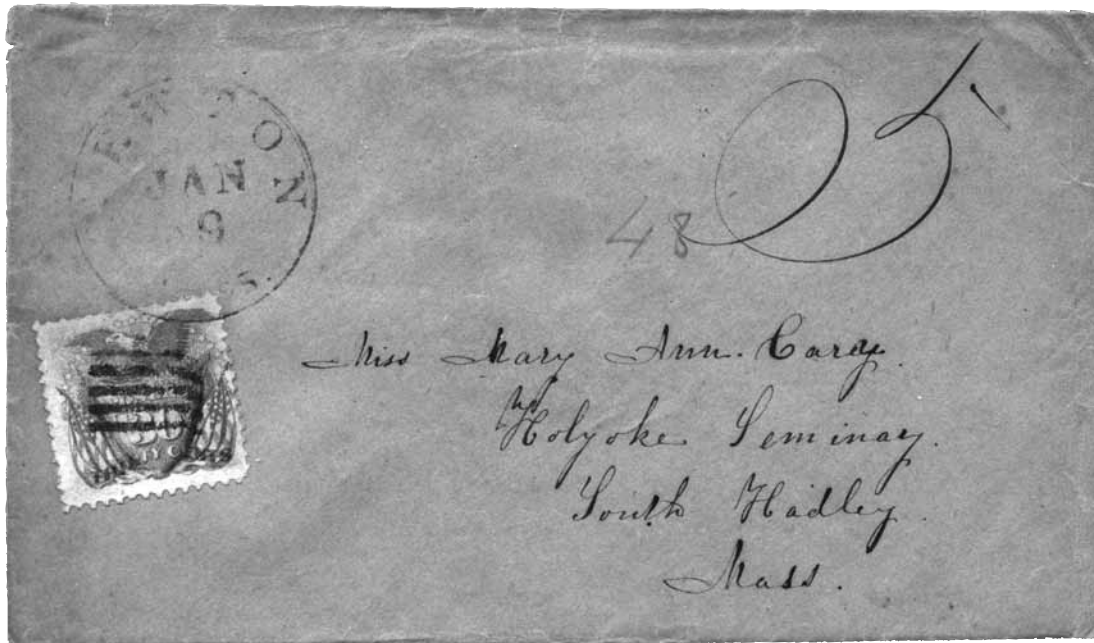 JAN
9
25
48
Miss Mary Ann. Carey.
Holyoke Seminay.
South Hadley.
Mass.
30